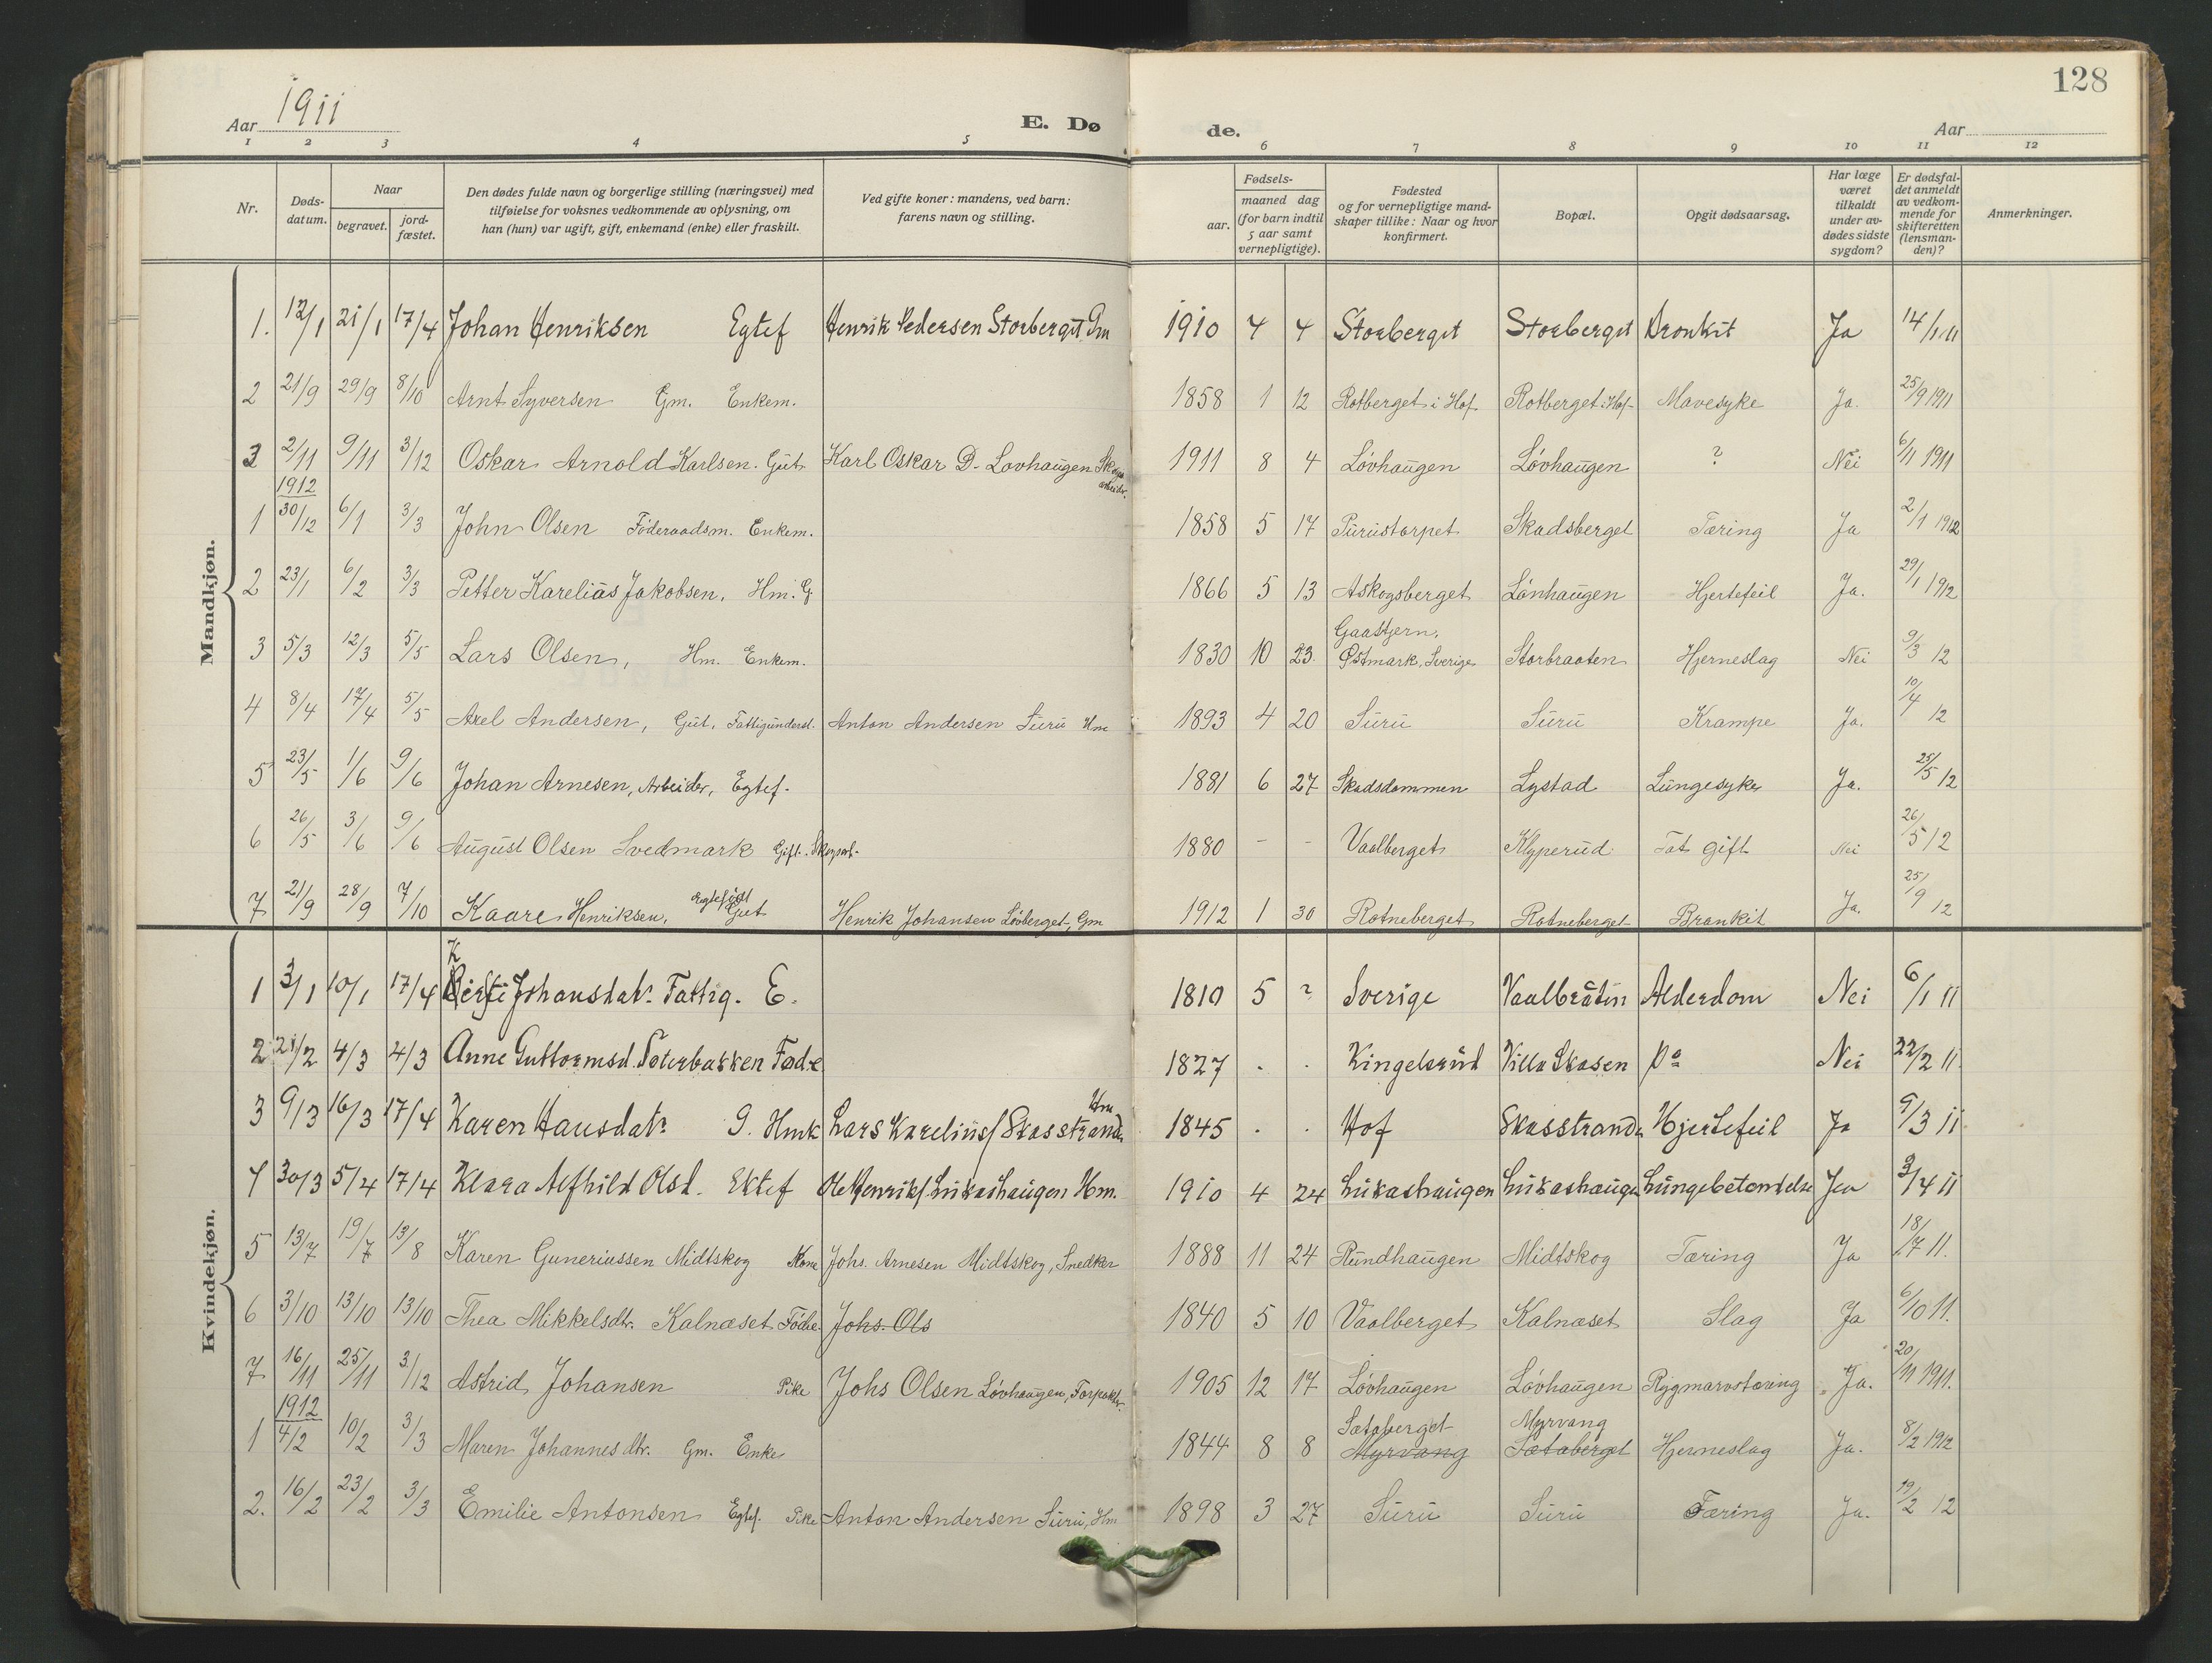 128
Aar 1911 E. Dø de. Aar
1 2 3 4 5 6 7 8 9 10 11 12
Nr. Døds-datum. Naar begravet. jord-fæstet. Den dødes fulde navn og borgerlige stilling (næringsvei) med tilføielse for voksnes vedkommende av oplysning, om han (hun) var ugift, gift, enkemand (enke) eller fraskilt. Ved gifte koner: mandens, ved barn: farens navn og stilling. Fødsels- aar. maaned dag (for barn indtil 5 aar samt vernepligtige). Fødested og for vernepligtige mandskaper tillike: Naar og hvor konfirmert. Bopæl. Opgit dødsaarsag. Har læge været tilkaldt under avdødes sidste sygdom? Er dødsfaldet anmeldt av vedkommende for skifteretten (lensmanden)? Anmerkninger.
Mandkjøn.
1. 12/1 21/1 17/4 Johan Henriksen Egtef Henrik Pedersen Storberget Gm 1910 4 4 Storberget Storberget Bronkit Ja 14/1 11
2 21/9 29/9 8/10 Arnt Syversen Gm. Enkem. 1858 1 12 Rotberget i Hof Rotberget i Hof Mavesyke Ja. 25/9 1911
3 2/11 9/11 3/12 Oskar Arnold Karlsen. Gut Karl Oskar D. Lovhaugen Skogsarbeider. 1911 8 4 Lövhaugen Lövhaugen ? Nei 6/11 1911
1912
1 30/12 6/1 3/3 John Olsen Föderaadsm. Enkem. 1858 5 17 Purustorpet Skadsberget Tæring Ja 2/1 1912
2 23/1 6/2 3/3 Petter Karelius Jakobsen, Hm. G. 1866 5 13 Askogsberget Lönhaugen Hjertefeil Ja. 29/1 1912
3 5/3 12/3 5/5 Lars Olsen, Hm. Enkem. 1830 10 23. Gaastjern, Østmark, Sverige Storbraaten Hjerneslag Nei 9/3 12
4 8/4 17/4 5/5 Axel Andersen, Gut, Fattigunderst. Anton Andersen Suru Hm 1893 4 20 Suru Suru Krampe Ja. 10/4 12
5 23/5 1/6 9/6 Johan Arnesen, Arbeider, Egtef. 1881 6 27 Skadsdammen Lystad Lungesyke Ja. 25/5 12
6 26/5 3/6 9/6 August Olsen Svedmark Gift. Skogsarb. 1880 - - Vaalberget Klyperud Tat gift Nei 26/5 12
7 21/9 28/9 7/10 Kaare Henriksen, Egtefödt Gut Henrik Johansen Lövberget, Gm 1912 1 30 Rotneberget Rotneberget Brankit Ja. 25/9 12
Kvindekjøn.
1 3/1 10/1 17/4 Kersti Johansdatr. Fattig. E. 1810 5 ? Sverige Vaalbråtin Alderdom Nei 6/1 11
2 21/2 4/3 4/3 Anne Guttormsd. Säterbakken Föd.e 1827 . . Kingelsrud Villa Skasen Do Nei 22/2 11.
3 9/3 16/3 17/4 Karen Hansdatr G. Hmk Lars Karelius Skasstrand Hm 1845 . . Hof Skasstrand Hjertefeil Ja 9/3 11
4 30/3 5/4 17/4 Klara Alfhild Olsd. Ektef Ole Henriks Lukashaugen Hm. 1910 4 24 Lukashaugen Lukashaugen Lungebetændelse Ja 3/4 11
5 13/7 19/7 13/8 Karen Guneriussen Midtskog Kone Johs. Arnesen Midtskog, Snedker 1888 11 24 Rundhaugen Midtskog Tæring Ja 18/7 11.
6 3/10 13/10 13/10 Thea Mikkelsdtr. Kalnæset Föd.e. Johs. Ols 1840 5 10 Vaalberget Kalnæset Slag Ja 6/10 11.
7 16/11 25/11 3/12 Astrid Johansen Pike Johs Olsen Lövhaugen, Forpakter. 1905 12 17 Lövhaugen Lövhaugen Rygmarvstæring Ja. 20/11 1911.
1912
1 4/2 10/2 3/3 Maren Johannesdtr. Gm. Enke 1844 8 8 Sætaberget Myrvang Myrvang Sætaberget Hjerneslag Ja. 8/2 1912
2. 16/2 23/2 3/3 Emilie Antonsen Egtef. Pike Anton Andersen Suru, Hm 1898 3 27 Suru Suru Tæring Ja. 19/2 12